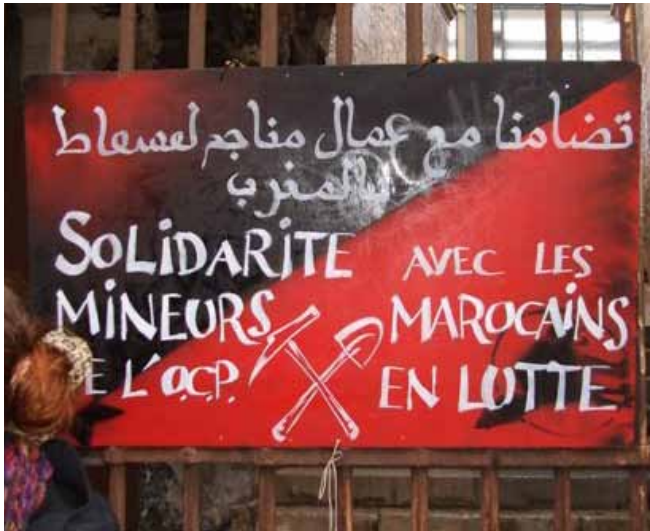 تضامنا مع عمال مناجم لفسفاط
بالمغرب
SOLIDARITE AVEC LES
MINEURS MAROCAINS
E L'O.C.P. EN LUTTE